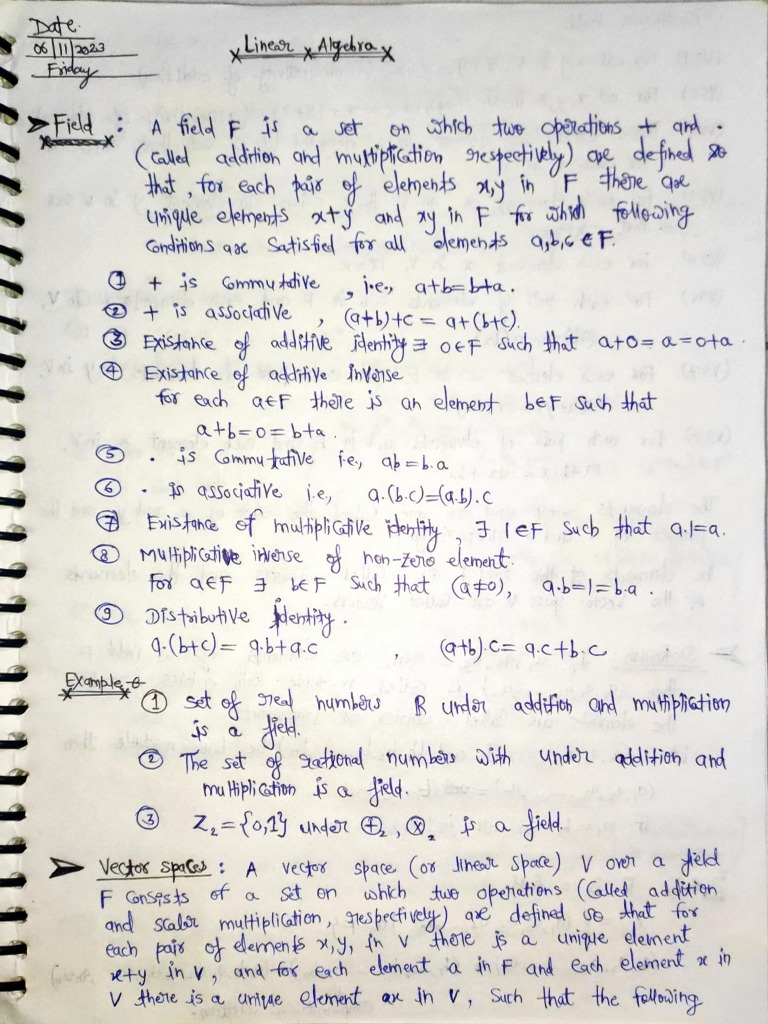 Date.
06/11/2023
Friday
Linear Algebra
Field : A field F is a set on which two operations + and .
(called addition and multiplication respectively) are defined so
that, for each pair of elements x,y in F there are
unique elements x+y and xy in F for which following
conditions are satisfied for all elements a,b,c ∈ F.
① + is commutative, i.e., a+b=b+a.
② + is associative, (a+b)+c = a+(b+c).
③ Existance of additive identity ∃ 0∈F such that a+0=a=0+a.
④ Existance of additive inverse
for each a∈F there is an element b∈F such that
a+b=0=b+a
⑤ . is commutative i.e., ab=b.a
⑥ . is associative i.e., a.(b.c)=(a.b).c
⑦ Existance of multiplicative identity, ∃ 1∈F such that a.1=a.
⑧ Multiplicative inverse of non-zero element.
For a∈F ∃ b∈F such that (a≠0), a.b=1=b.a.
⑨ Distributive identity.
a.(b+c)= a.b+a.c , (a+b).c= a.c+b.c
Example
① set of real numbers R under addition and multiplication
is a field.
② The set of rational numbers with under addition and
multiplication is a field.
③ Z₂={0,1} under ⊕₂, ⊗₂ is a field.
Vector spaces : A vector space (or linear space) V over a field
F consists of a set on which two operations (called addition
and scalar multiplication, respectively) are defined so that for
each pair of elements x,y, in V there is a unique element
x+y in V, and for each element a in F and each element x in
V there is a unique element ax in V, such that the following